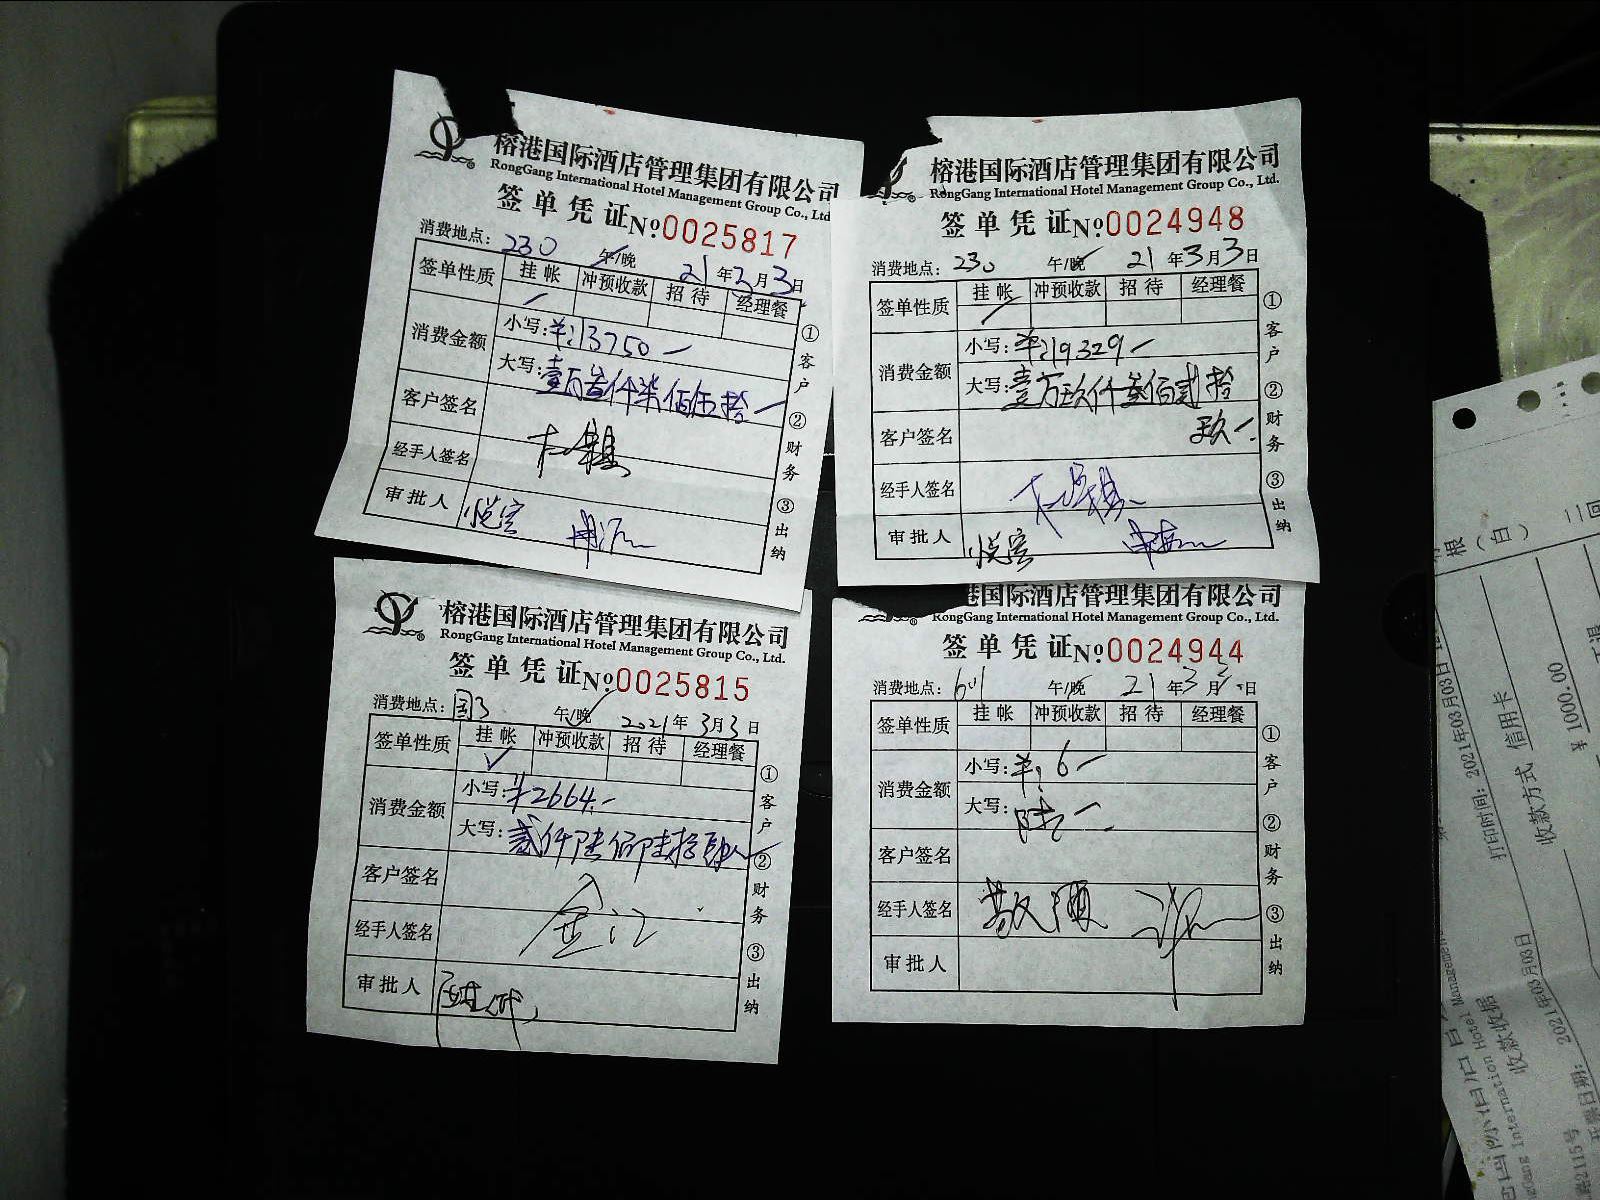 榕港国际酒店管理集团有限公司
RongGang International Hotel Management Group Co., Ltd
签单凭证 №0025817
消费地点: 230 午/晚 21年3月3日
签单性质 挂帐 冲预收款 招待 经理餐
消费金额 小写: ¥:13750
大写: 壹万叁仟柒佰伍拾
客户签名
经手人签名
审批人 悦宾
①客户 ②财务 ③出纳
榕港国际酒店管理集团有限公司
RongGang International Hotel Management Group Co., Ltd.
签单凭证 №0024948
消费地点: 230 午/晚 21年3月3日
签单性质 挂帐 冲预收款 招待 经理餐
消费金额 小写: ¥:19329
大写: 壹万玖仟叁佰贰拾
玖
客户签名
经手人签名
审批人 悦宾
①客户 ②财务 ③出纳
榕港国际酒店管理集团有限公司
RongGang International Hotel Management Group Co., Ltd.
签单凭证 №0025815
消费地点: 国3 午/晚 2021年3月3日
签单性质 挂帐 冲预收款 招待 经理餐
消费金额 小写: ¥2664.
大写: 贰仟陆佰陆拾肆
客户签名
经手人签名 金江
审批人
①客户 ②财务 ③出纳
港国际酒店管理集团有限公司
RongGang International Hotel Management Group Co., Ltd.
签单凭证 №0024944
消费地点: 午/晚 21年3月3日
签单性质 挂帐 冲预收款 招待 经理餐
消费金额 小写: ¥:6
大写: 陆
客户签名
经手人签名
审批人
①客户 ②财务 ③出纳
根(白) 二回
打印时间: 2021年03月03日
收款方式 信用卡 ¥ 1000.00
收款收据 2021年03月03日
International Hotel Management
路2115号